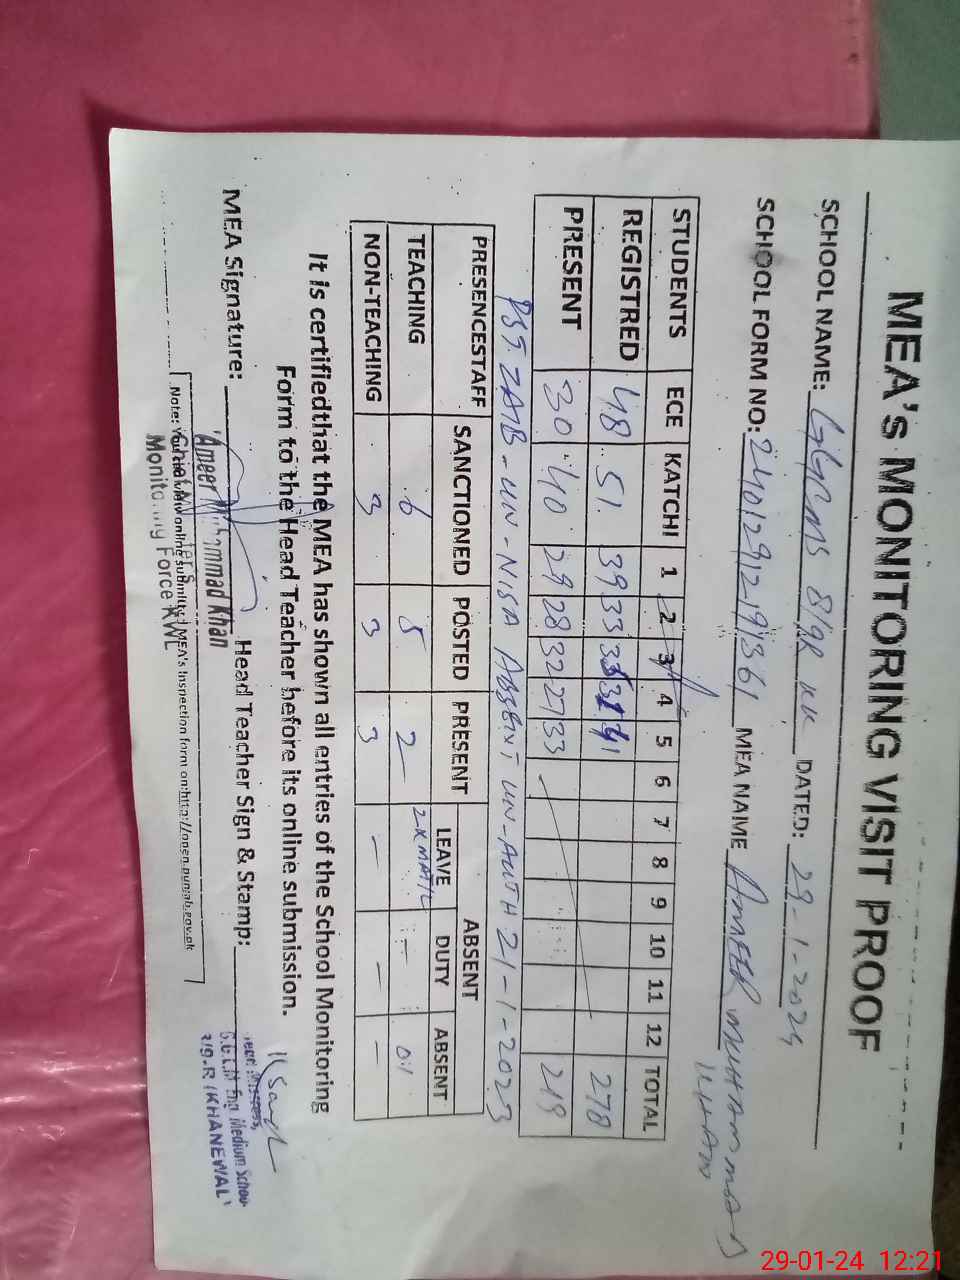 MEA's MONITORING VISIT PROOF
SCHOOL NAME: 8/9R DATED: 29-1-2024
SCHOOL FORM NO: MEA NAME AMEER MUHAMMAD
KHAN
STUDENTS ECE KATCHI 1 2 3 4 5 6 7 8 9 10 11 12 TOTAL
REGISTRED 48 51 39 33 278
PRESENT 30 40 29 28 32 27 33 219
PST. ZAIB-UN-NISA ABSENT UN-AUTH 21-1-2023
PRESENCESTAFF SANCTIONED POSTED PRESENT ABSENT
LEAVE DUTY ABSENT
TEACHING 6 5 2 2 x MAT/L - 01
NON-TEACHING 3 3 3 - - -
It is certifiedthat the MEA has shown all entries of the School Monitoring
Form to the Head Teacher before its online submission.
MEA Signature: Head Teacher Sign & Stamp:
Ameer Muhammad Khan
Monitoring Force KWL
Note: You can view online submitted MEA's Inspection form on:http://open.punjab.gov.pk
Eng Medium School
(KHANEWAL)
29-01-24 12:21